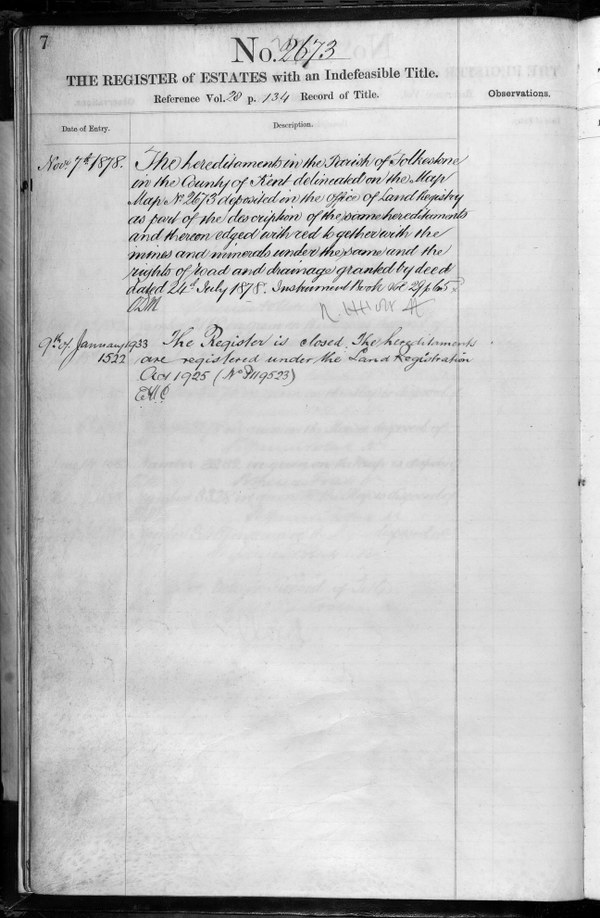 7
No. 2673
THE REGISTER of ESTATES with an Indefeasible Title.
Reference Vol. 28 p. 134 Record of Title.
Observations.
Date of Entry.
Description.
Novr. 7th 1878. The hereditaments in the Parish of Folkestone
in the County of Kent delineated on the Map
Map No. 2673 deposited in the office of Land Registry
as part of the description of the same hereditaments
and thereon edged with red together with the
mines and minerals under the same and the
rights of road and drainage granted by deed
dated 24th July 1878. Instrument Book Vol 29 p 65
9th of January 1933 The Register is closed. The hereditaments
1522 are registered under the Land Registration
Act 1925 (No P119523)